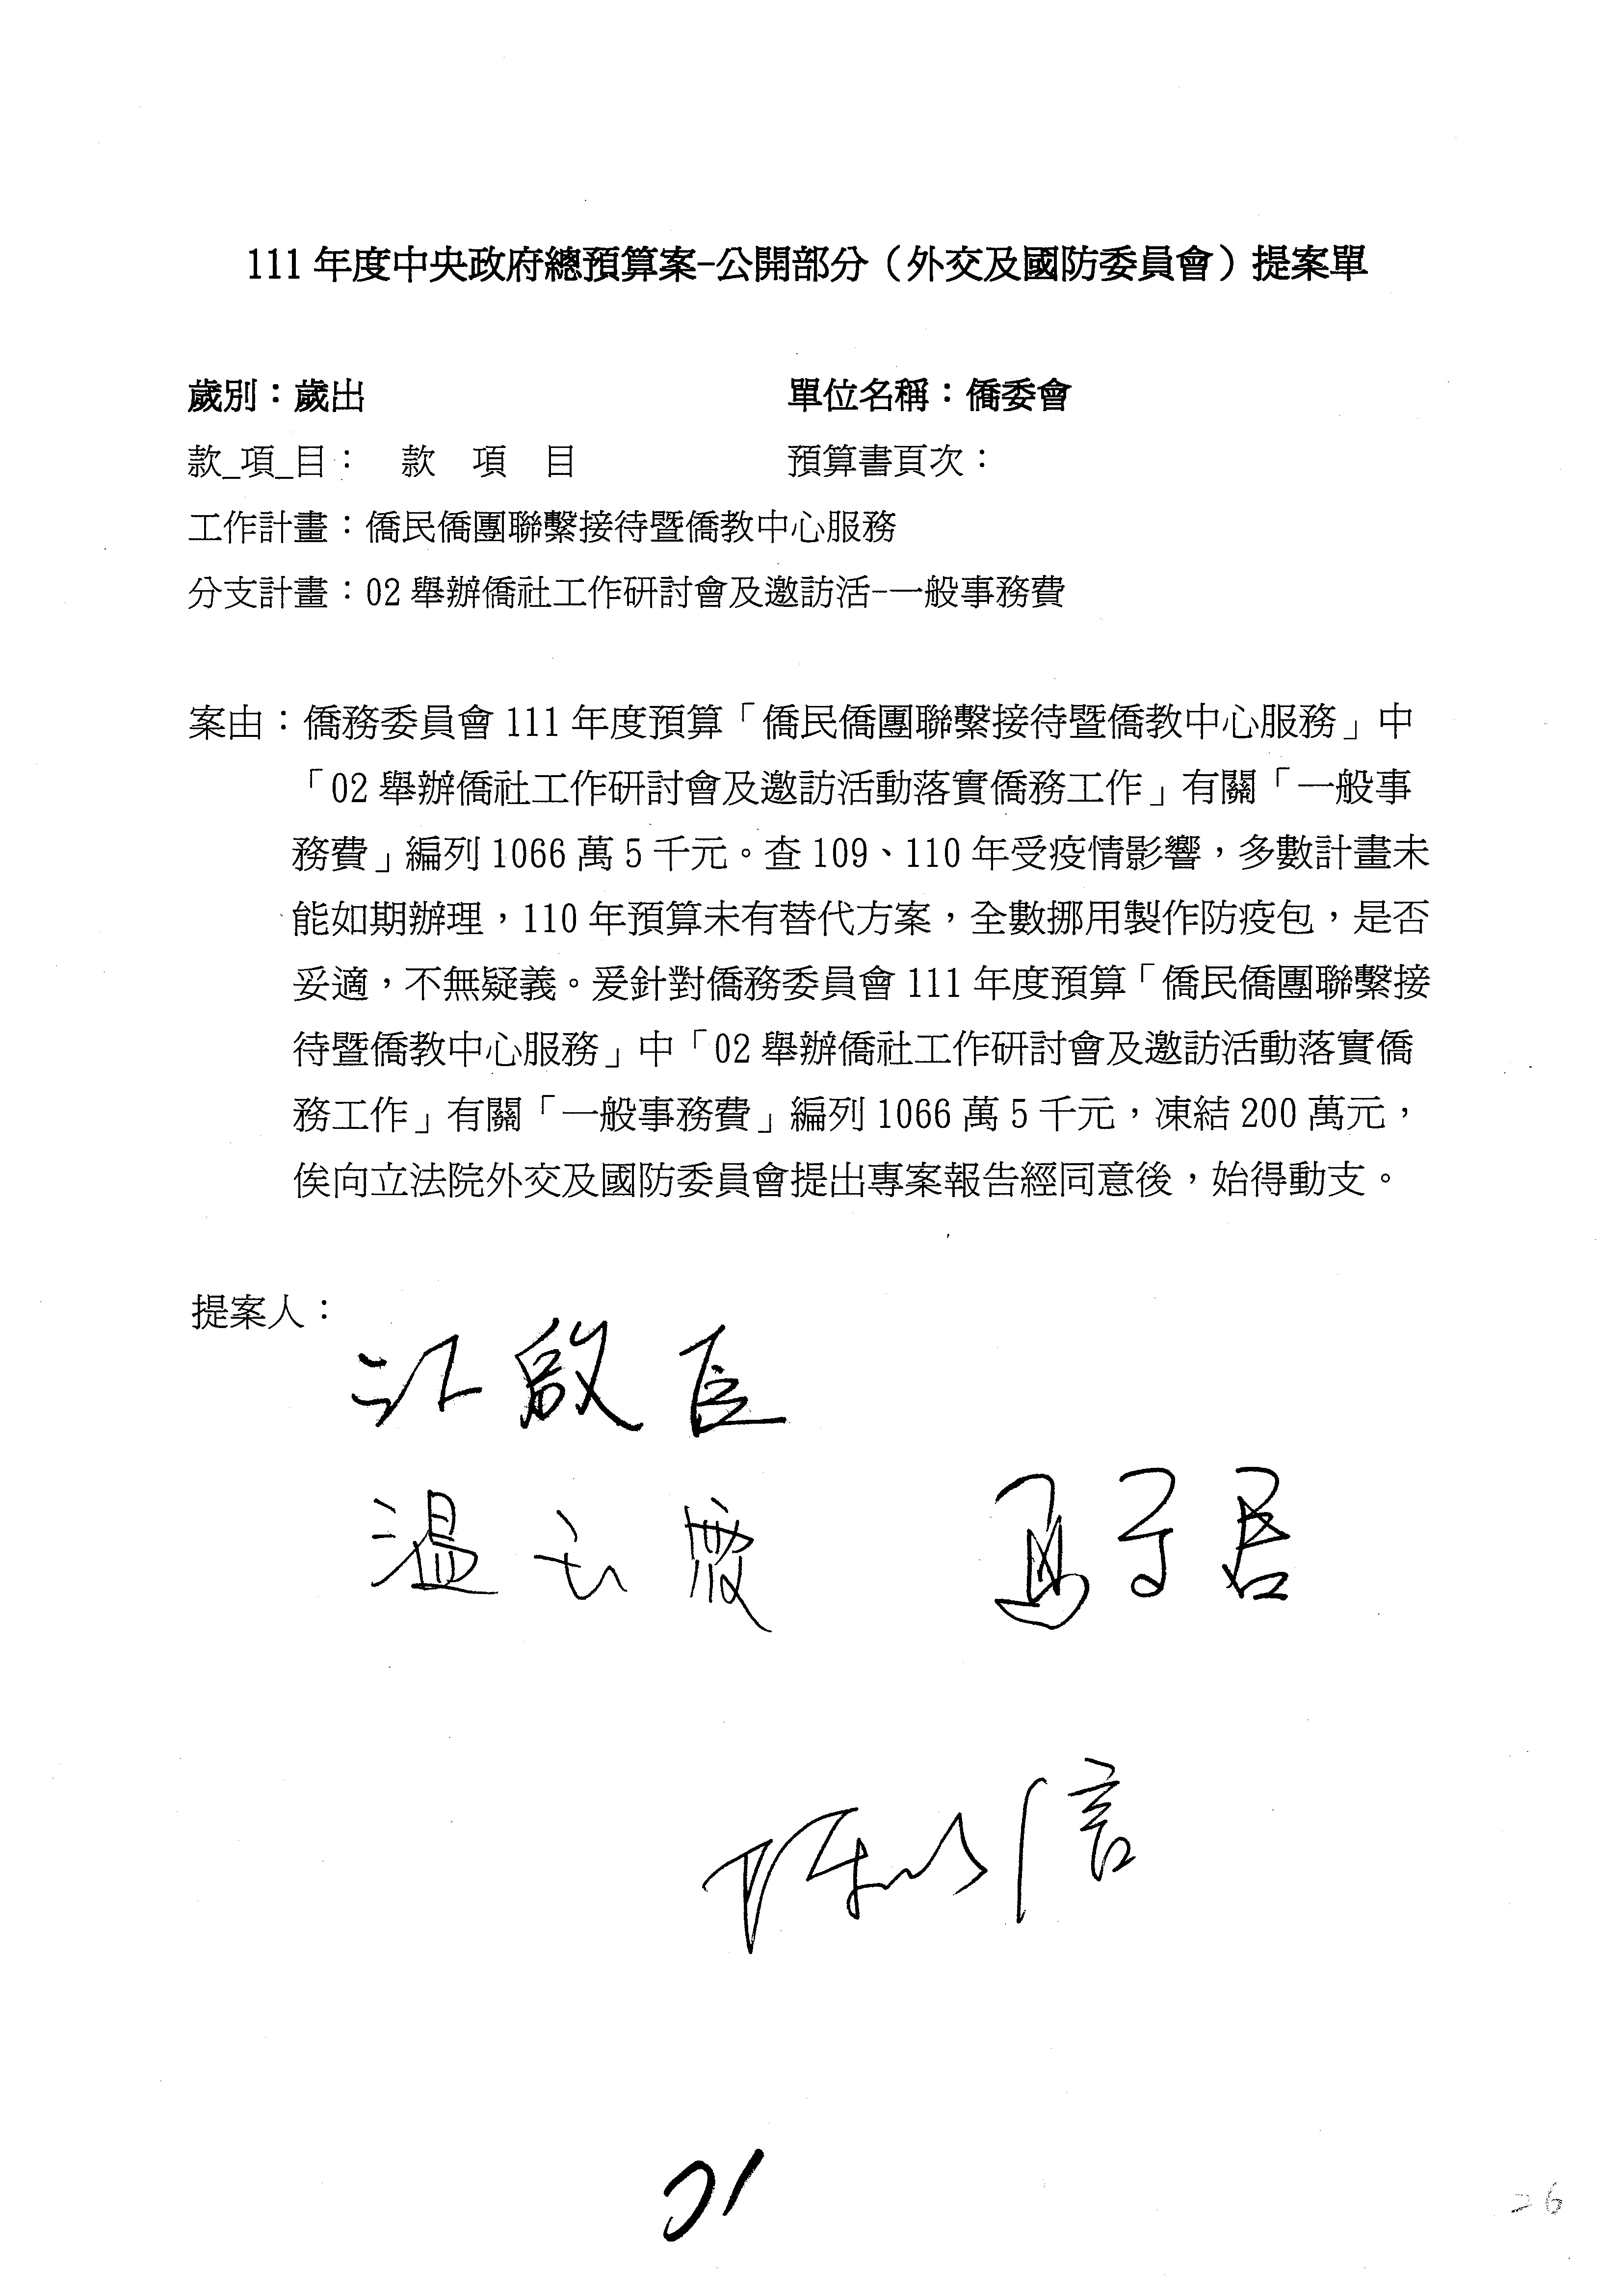 111年度中央政府總預算案-公開部分（外交及國防委員會）提案單
歲別：歲出　單位名稱：僑委會
款_項_目：　款　項　目　預算書頁次：
工作計畫：僑民僑團聯繫接待暨僑教中心服務
分支計畫：02舉辦僑社工作研討會及邀訪活-一般事務費
案由：僑務委員會111年度預算「僑民僑團聯繫接待暨僑教中心服務」中
「02舉辦僑社工作研討會及邀訪活動落實僑務工作」有關「一般事
務費」編列1066萬5千元。查109、110年受疫情影響，多數計畫未
能如期辦理，110年預算未有替代方案，全數挪用製作防疫包，是否
妥適，不無疑義。爰針對僑務委員會111年度預算「僑民僑團聯繫接
待暨僑教中心服務」中「02舉辦僑社工作研討會及邀訪活動落實僑
務工作」有關「一般事務費」編列1066萬5千元，凍結200萬元，
俟向立法院外交及國防委員會提出專案報告經同意後，始得動支。
提案人：
江啟臣
溫玉霞　馬文君
陳以信
26